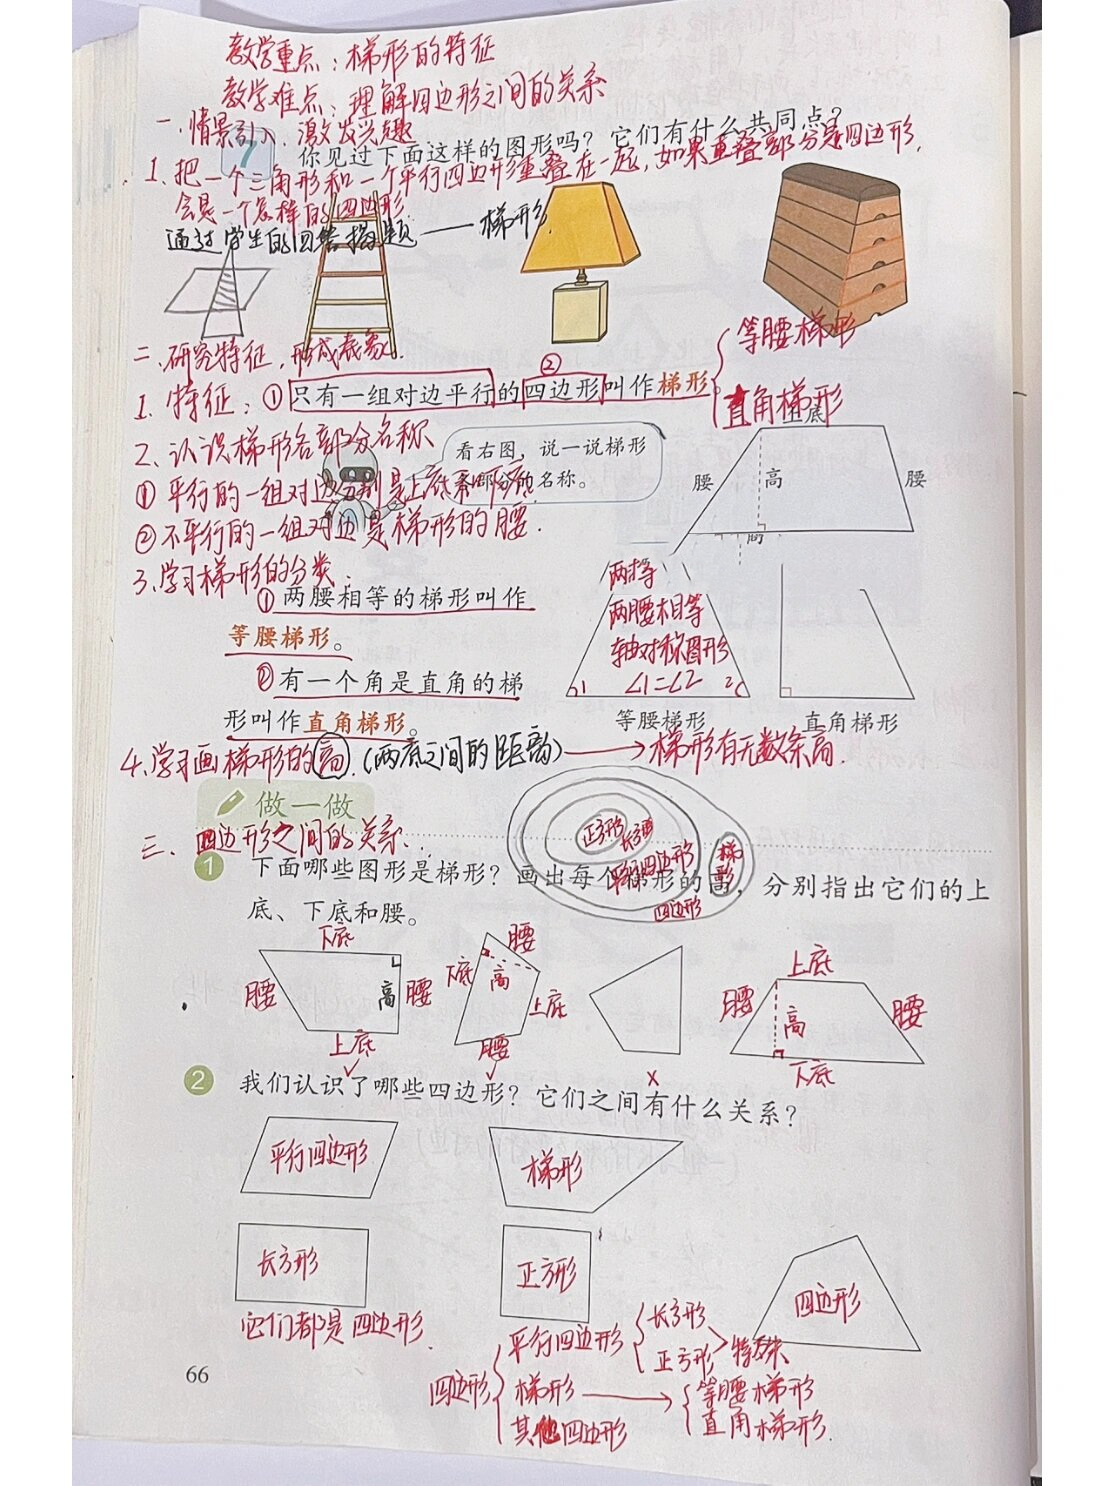 教学重点：梯形的特征
教学难点：理解四边形之间的关系
一、情景引入，激发兴趣
7 你见过下面这样的图形吗？它们有什么共同点？
1、把一个三角形和一个平行四边形重叠在一起，如果重叠部分是四边形，
会是一个怎样的四边形.
通过学生的回答揭题——梯形
二、研究特征，形成表象.
等腰梯形
直角梯形
②
1、特征：①只有一组对边平行的四边形叫作梯形。
2、认识梯形各部分名称
看右图，说一说梯形
各部分的名称。
上底
腰 高 腰
①平行的一组对边分别是上底和下底.
②不平行的一组对边是梯形的腰.
3、学习梯形的分类.
①两腰相等的梯形叫作
等腰梯形。
②有一个角是直角的梯
形叫作直角梯形。
两腰相等
轴对称图形
∠1=∠2
1 2
等腰梯形 直角梯形
4、学习画梯形的高.(两底之间的距离)→梯形有无数条高.
做一做
三、四边形之间的关系.
正方形
长方形
平行四边形
四边形
梯形
1 下面哪些图形是梯形？画出每个梯形的高，分别指出它们的上
底、下底和腰。
下底 腰 高 腰 上底 ✓
腰 下底 高 上底 腰 ✓
×
上底 腰 高 腰 下底
2 我们认识了哪些四边形？它们之间有什么关系？
平行四边形 梯形
长方形 正方形 四边形
它们都是四边形.
四边形
平行四边形 长方形 正方形 特殊
梯形→等腰梯形 直角梯形.
其他四边形
66